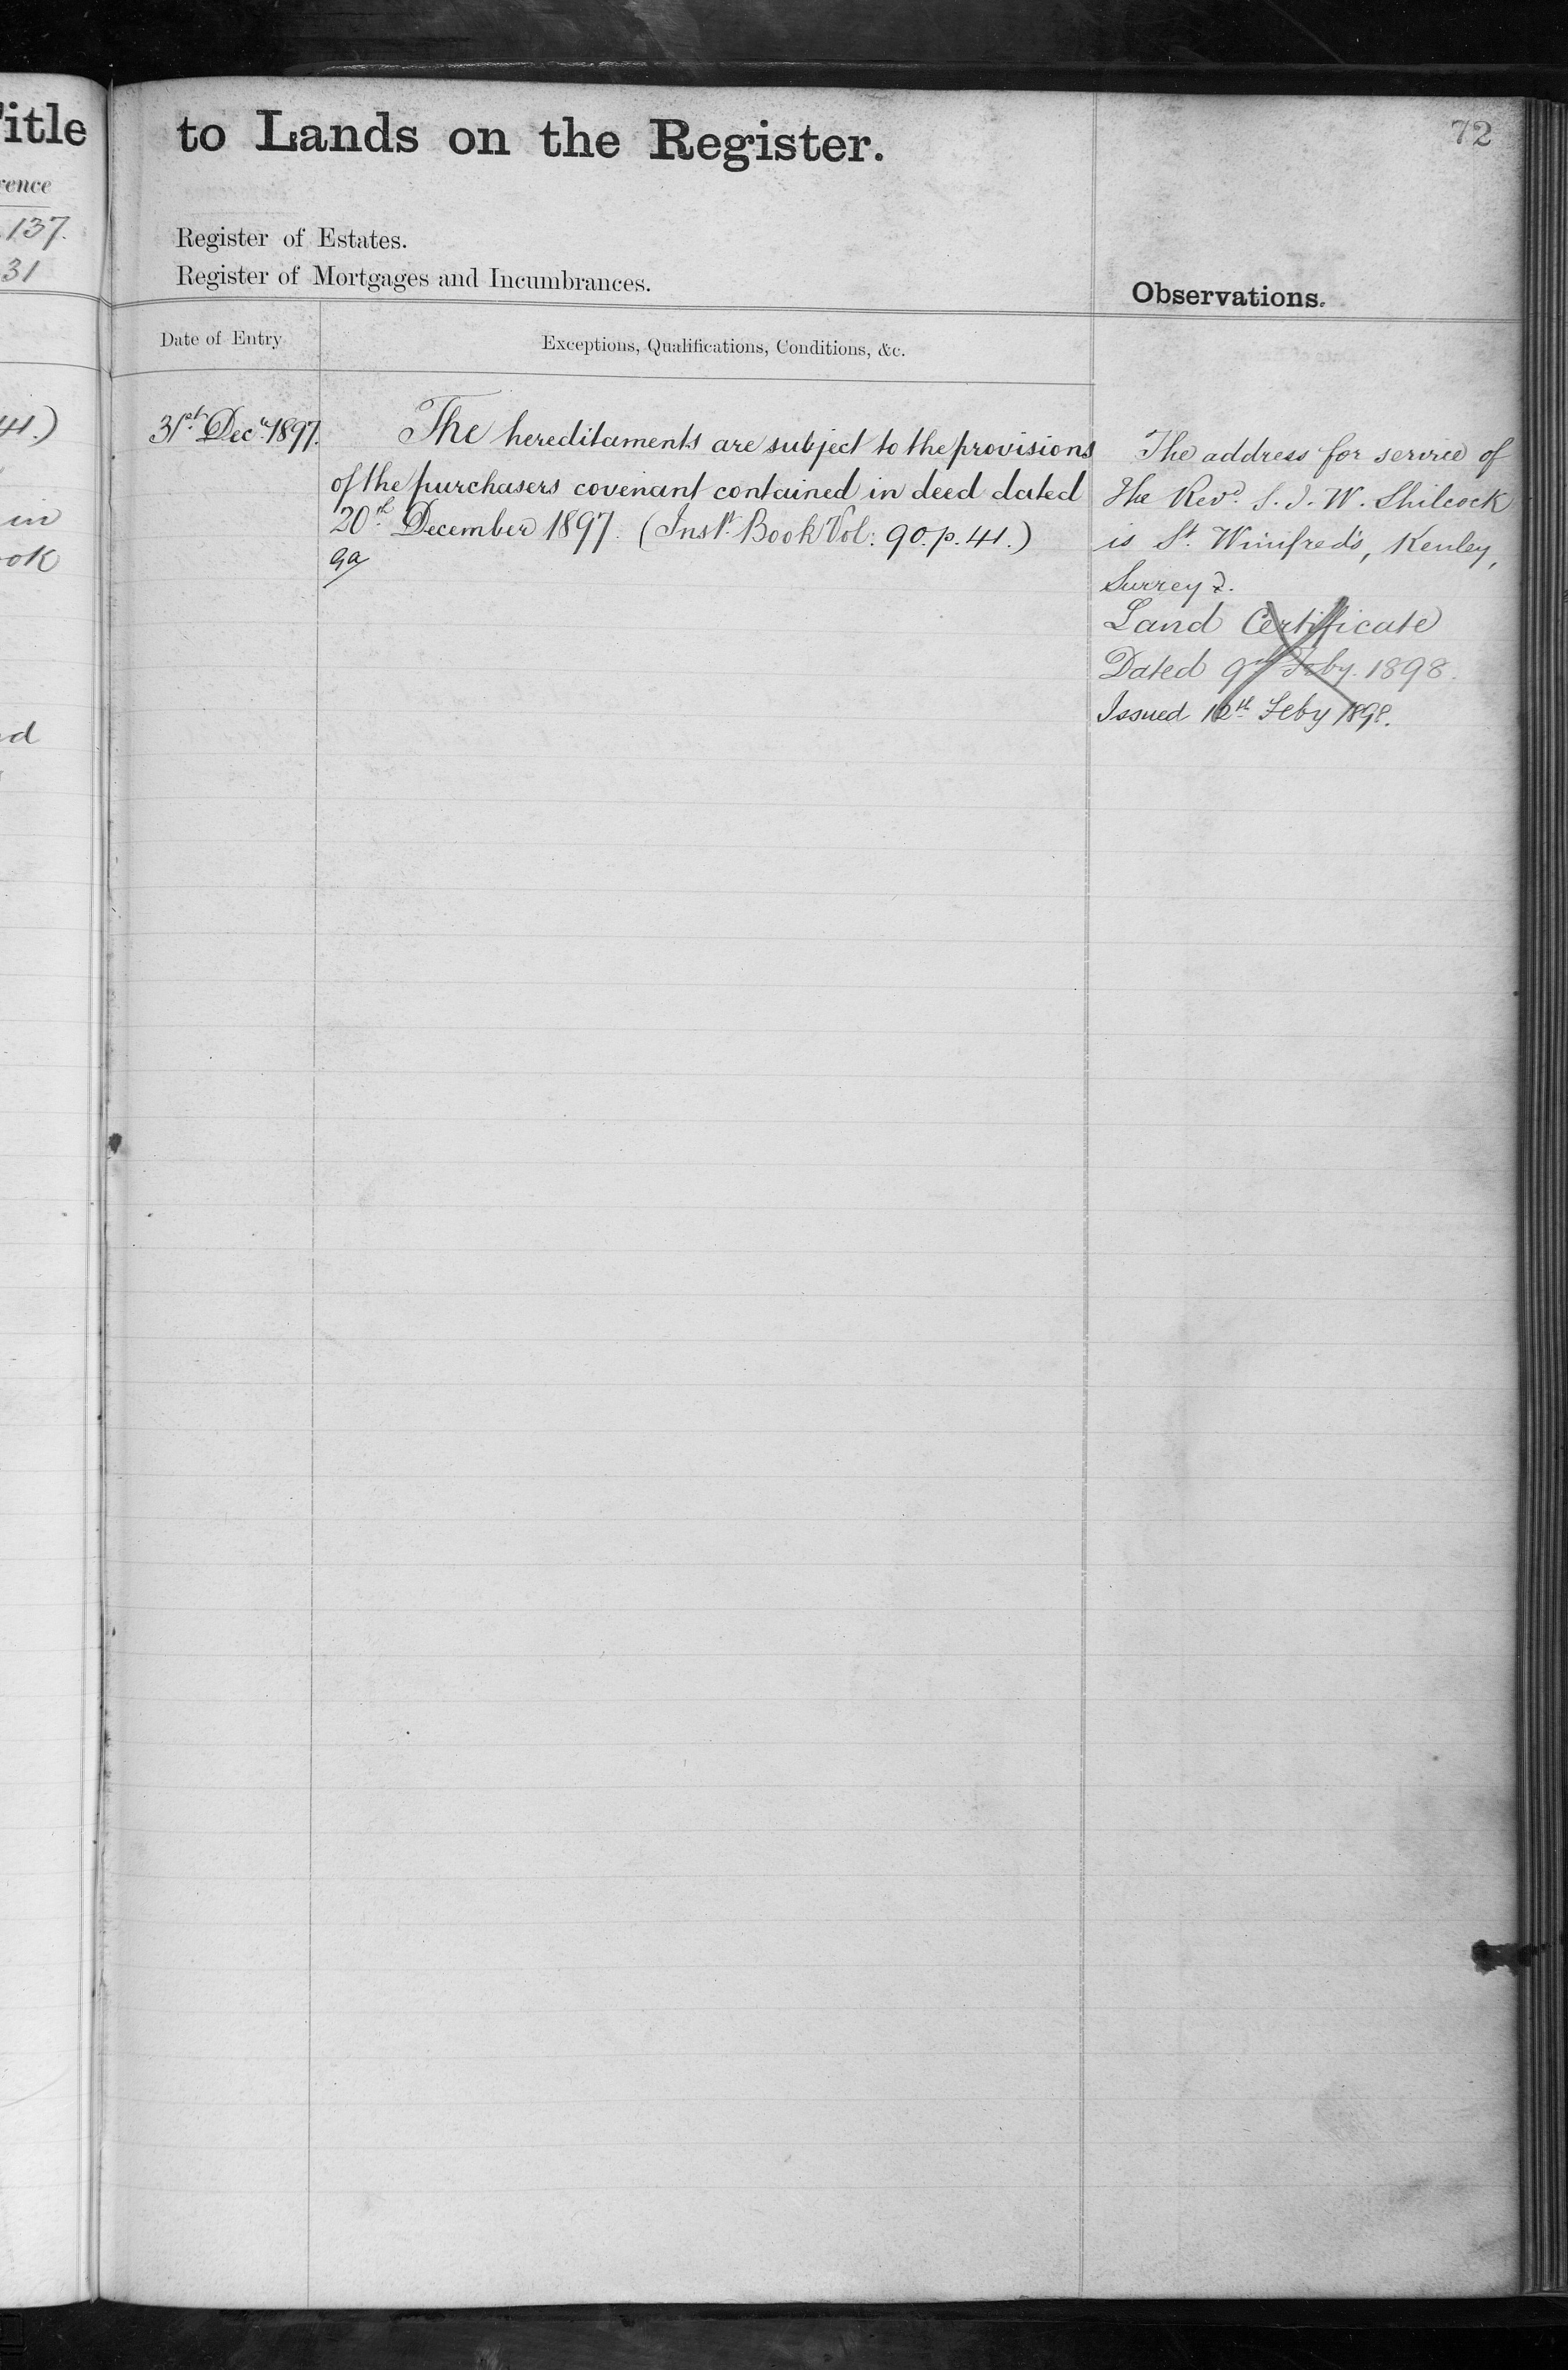 itle
to Lands on the Register.
72
rence
137.
31
Register of Estates.
Register of Mortgages and Incumbrances.
Observations.
Date of Entry
Exceptions, Qualifications, Conditions, &c.
41.)
in
ok
d
31st Decr 1897.
The hereditaments are subject to the provisions
of the purchasers covenant contained in deed dated
20th December 1897. (Inst. Book Vol: 90. p. 41.)
The address for service of
the Revd. S. J. W. Shilcock
is St. Winifred's, Kenley,
Surrey
Land Certificate
Dated 9th Feby. 1898.
Issued 12th Feby 1898.